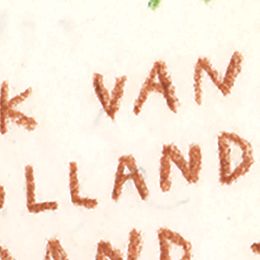 K VAN
LLAND
AND